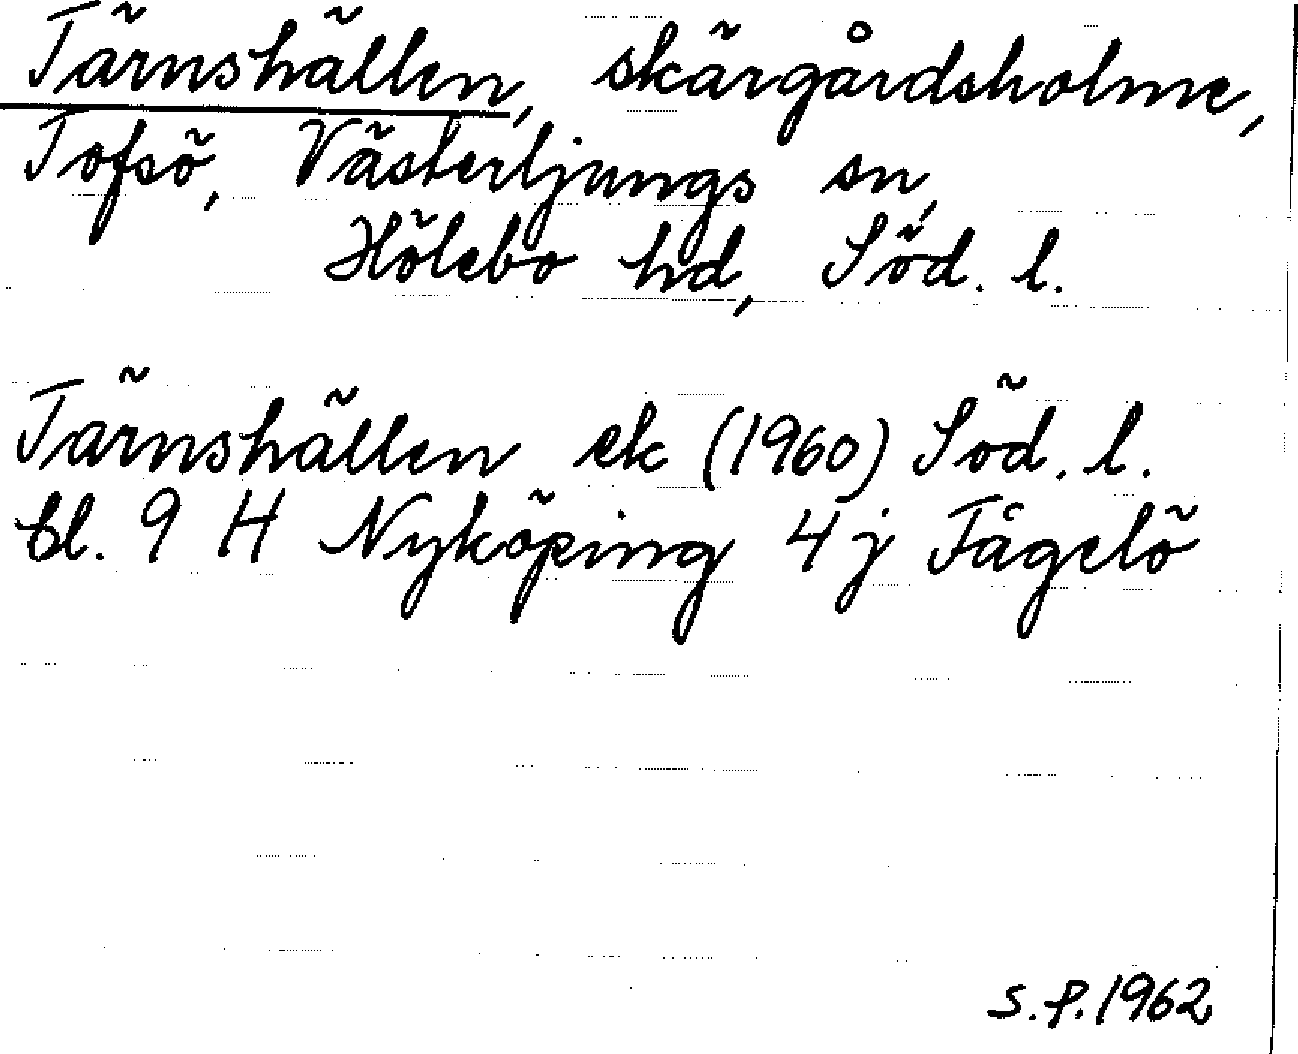 Tärnshällen, skärgårdsholme,
Tofsö, Västerljungs sn,
Hölebo hd, Söd. l.
Tärnshällen ek (1960) Söd. l.
bl. 9 H Nyköping 4 j Fågelö
S.P. 1962